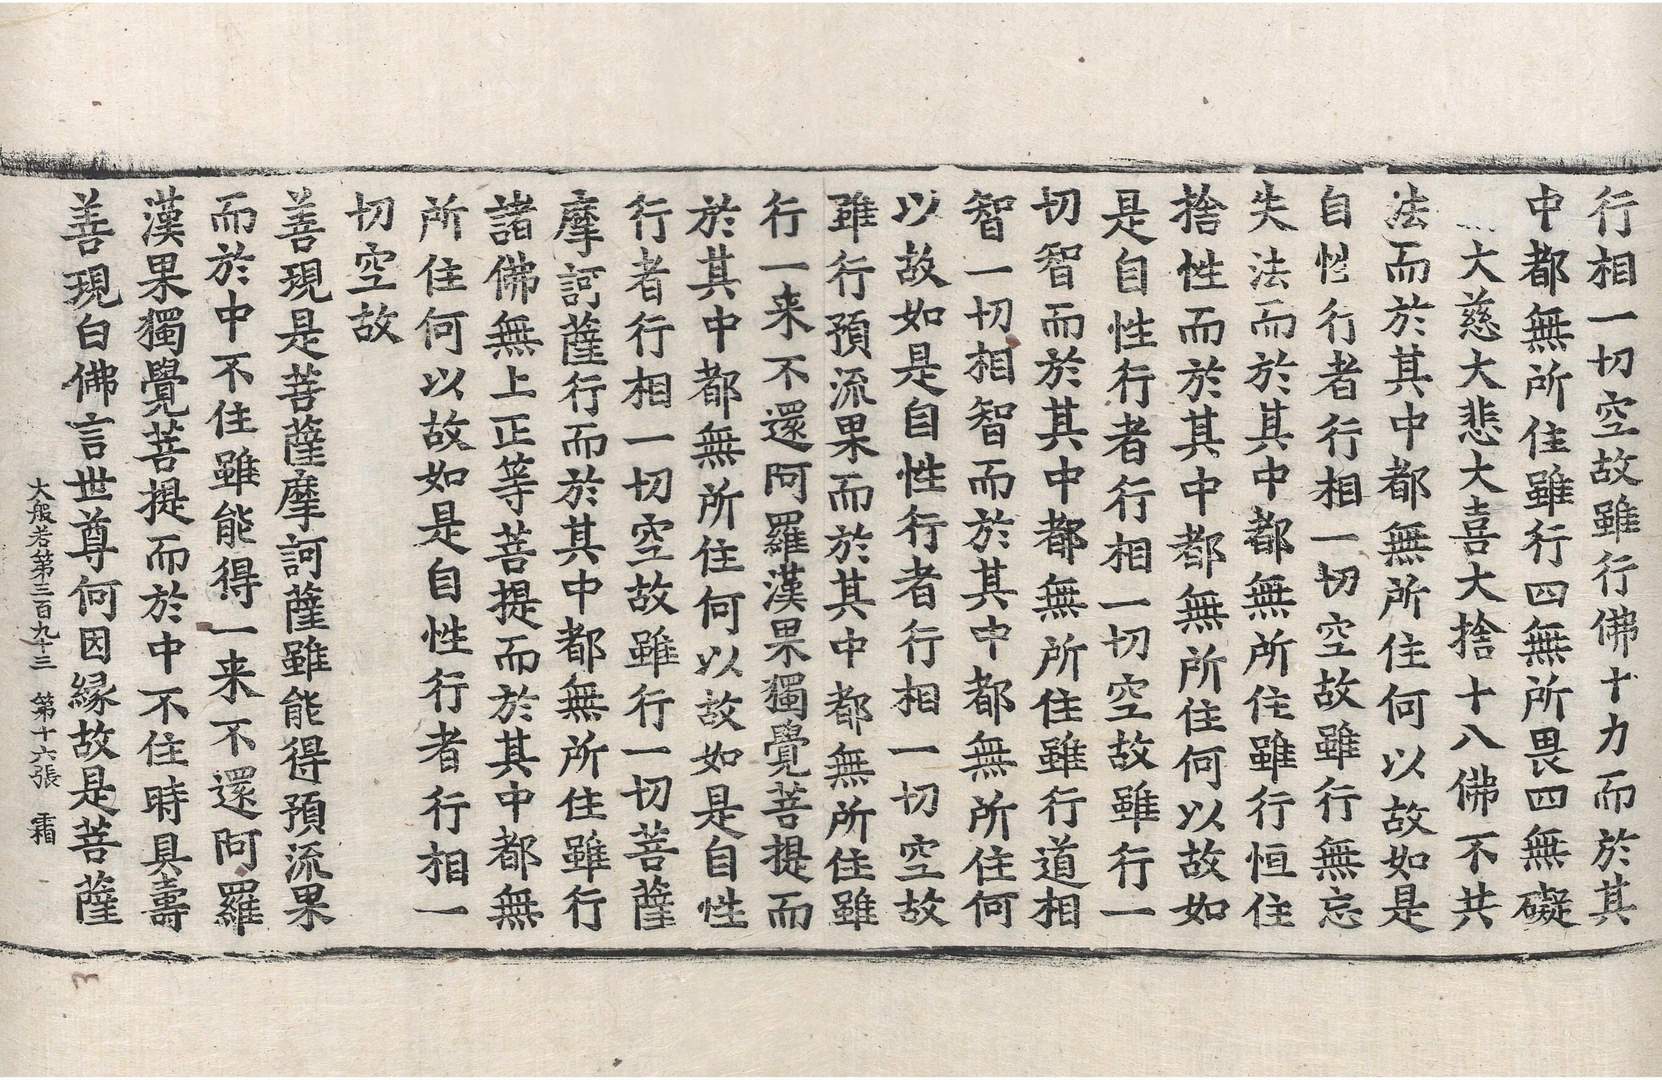 行相一切空故雖行佛十力而於其
中都無所住雖行四無所畏四無礙
大慈大悲大喜大捨十八佛不共
法而於其中都無所住何以故如是
自性行者行相一切空故雖行無忘
失法而於其中都無所住雖行恒住
捨性而於其中都無所住何以故如
是自性行者行相一切空故雖行一
切智而於其中都無所住雖行道相
智一切相智而於其中都無所住何
以故如是自性行者行相一切空故
雖行預流果而於其中都無所住雖
行一来不還阿羅漢果獨覺菩提而
於其中都無所住何以故如是自性
行者行相一切空故雖行一切菩薩
摩訶薩行而於其中都無所住雖行
諸佛無上正等菩提而於其中都無
所住何以故如是自性行者行相一
切空故
善現是菩薩摩訶薩雖能得預流果
而於中不住雖能得一来不還阿羅
漢果獨覺菩提而於中不住時具壽
善現白佛言世尊何因緣故是菩薩
大般若第三百九十三　第十六張　霜
3